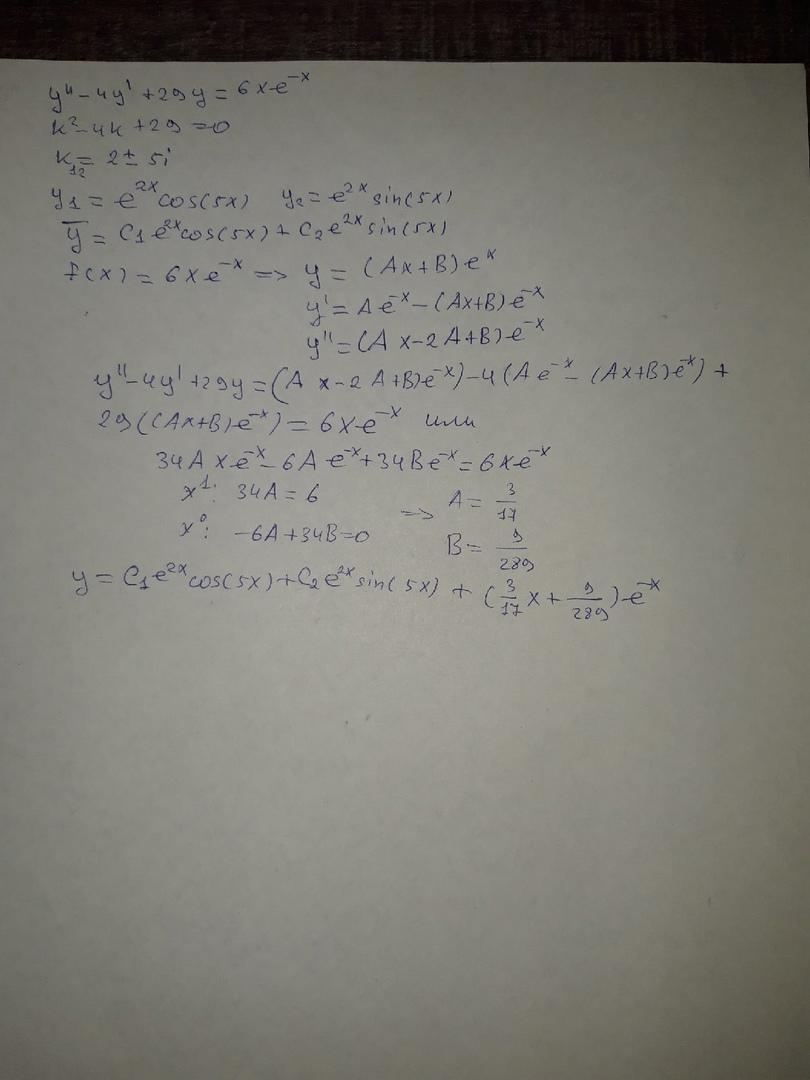 y'' - 4y' + 29y = 6xe^{-x}
k² - 4k + 29 = 0
k₁₂ = 2 ± 5i
y₁ = e^{2x}cos(5x) y₂ = e^{2x}sin(5x)
y̅ = C₁e^{2x}cos(5x) + C₂e^{2x}sin(5x)
f(x) = 6xe^{-x} => y = (Ax+B)e^{x}
y' = Ae^{-x} - (Ax+B)e^{-x}
y'' = (Ax - 2A + B)e^{-x}
y'' - 4y' + 29y = (Ax - 2A + B)e^{-x}) - 4(Ae^{-x} - (Ax+B)e^{-x}) +
29((Ax+B)e^{-x}) = 6xe^{-x} или
34Axe^{-x} - 6Ae^{-x} + 34Be^{-x} = 6xe^{-x}
x¹: 34A = 6 => A = 3/17
x⁰: -6A + 34B = 0 B = 9/289
y = C₁e^{2x}cos(5x) + C₂e^{2x}sin(5x) + (3/17 x + 9/289)·e^{-x}